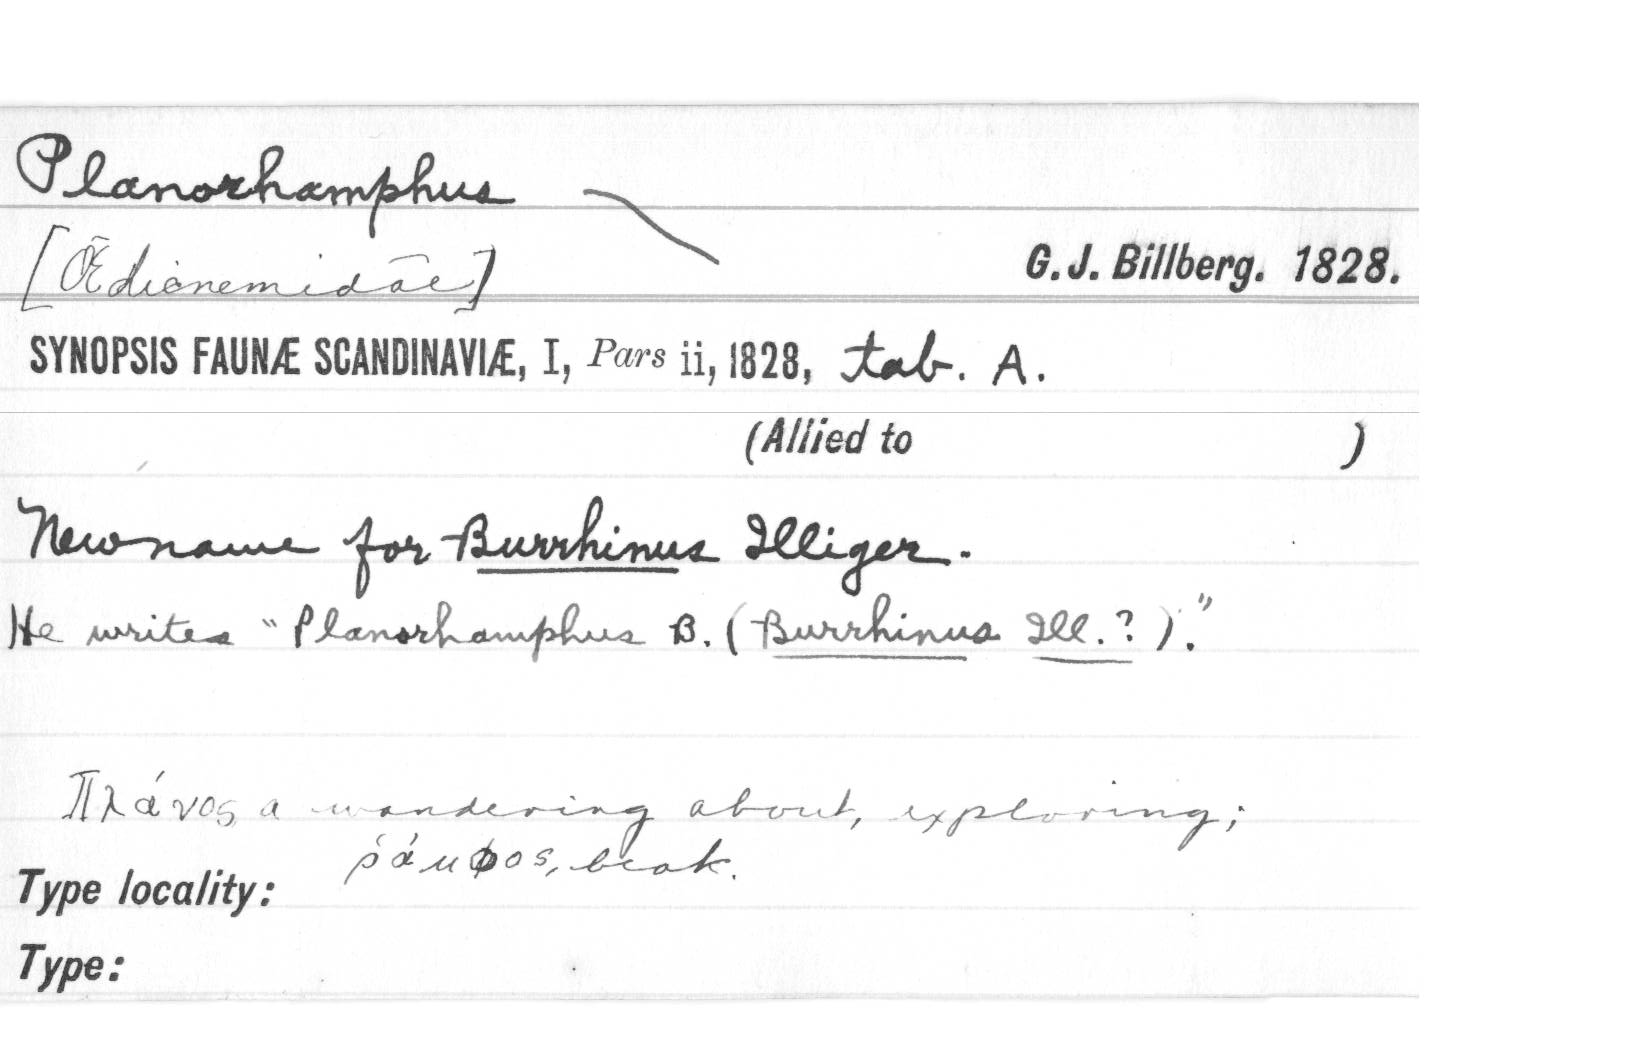 Planorhamphus
[Œdicnemidae]
G. J. Billberg. 1828.
SYNOPSIS FAUNÆ SCANDINAVIÆ, I, Pars ii, 1828, tab. A.
(Allied to )
New name for Burrhinus Illiger.
He writes "Planorhamphus B. (Burrhinus Ill. ?)."
Πλάνος, a wandering about, exploring;
ῥάμφος, beak.
Type locality:
Type: